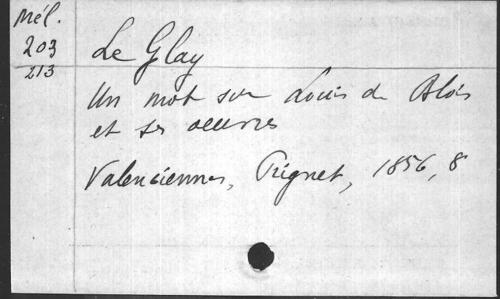 Mél.
203
213
Le Glay
Un mot sur Louis de Blois
et ses oeuvres
Valenciennes, Prignet, 1856, 8